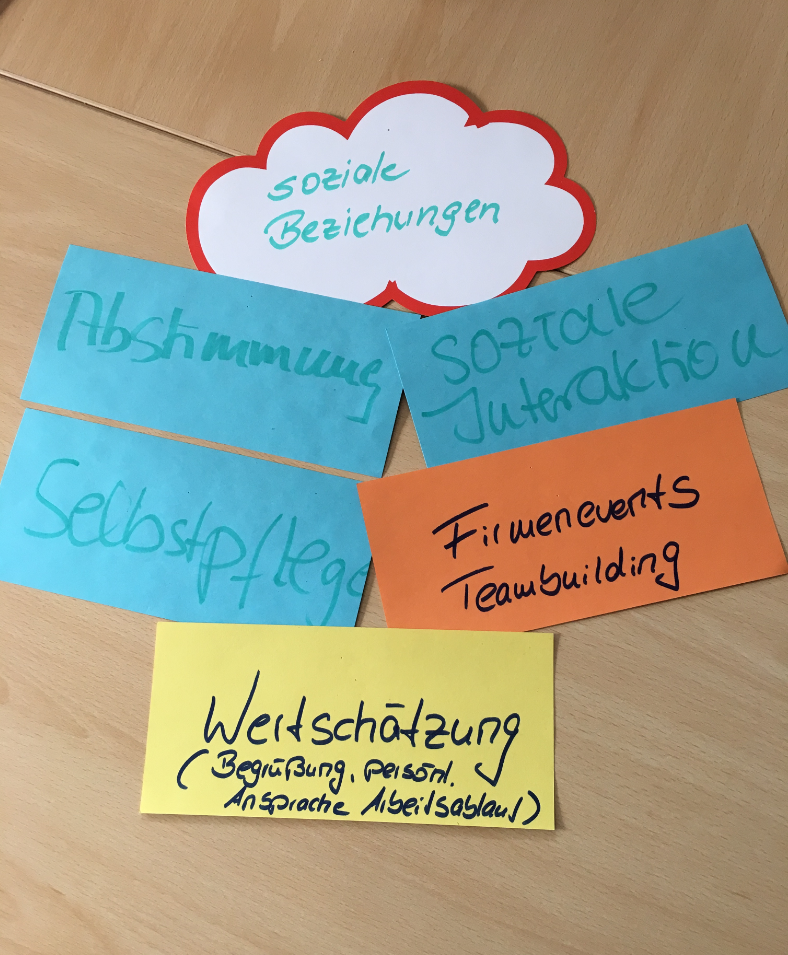 soziale
Beziehungen
Abstimmung
soziale
Interaktion
Selbstpflege
Firmenevents
Teambuilding
Wertschätzung
(Begrüßung, persönl.
Ansprache Arbeitsablauf)